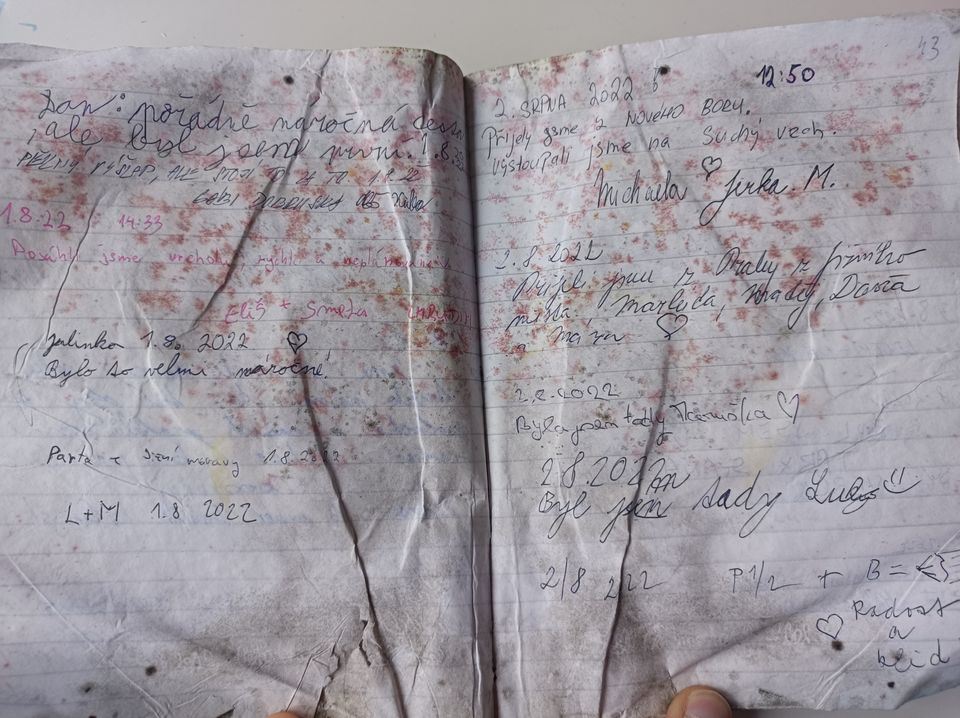 Dan: pořádně náročná cesta
, ale byl jsem první. 1.8.22
PĚKNÝ VÝŠLAP, ALE STOJÍ TO ZA TO 1.8.22
1.8.22 14:33
Dosáhli jsme vrcholu, rychle a neplánovaně
Eliš + Smeta
Julinka 1.8. 2022
Bylo to velmi náročné!
Parta z Jižní moravy 1.8.2022
L+M 1.8 2022
43
2. SRPNA 2022 12:50
Přijely jsme z NOVÉHO BORU.
Výstoupali jsme na Suchý vrch.
Michaela Jirka M.
2.8 2022
Přijeli jsme z Prahy z jižního
města Markéta,
a
2.8.2022
Byla jsem tady Terouška
2.8.2022
Byl jsem tady Lukáš
2/8 222 P1/2 + B =
Radost
a
klid